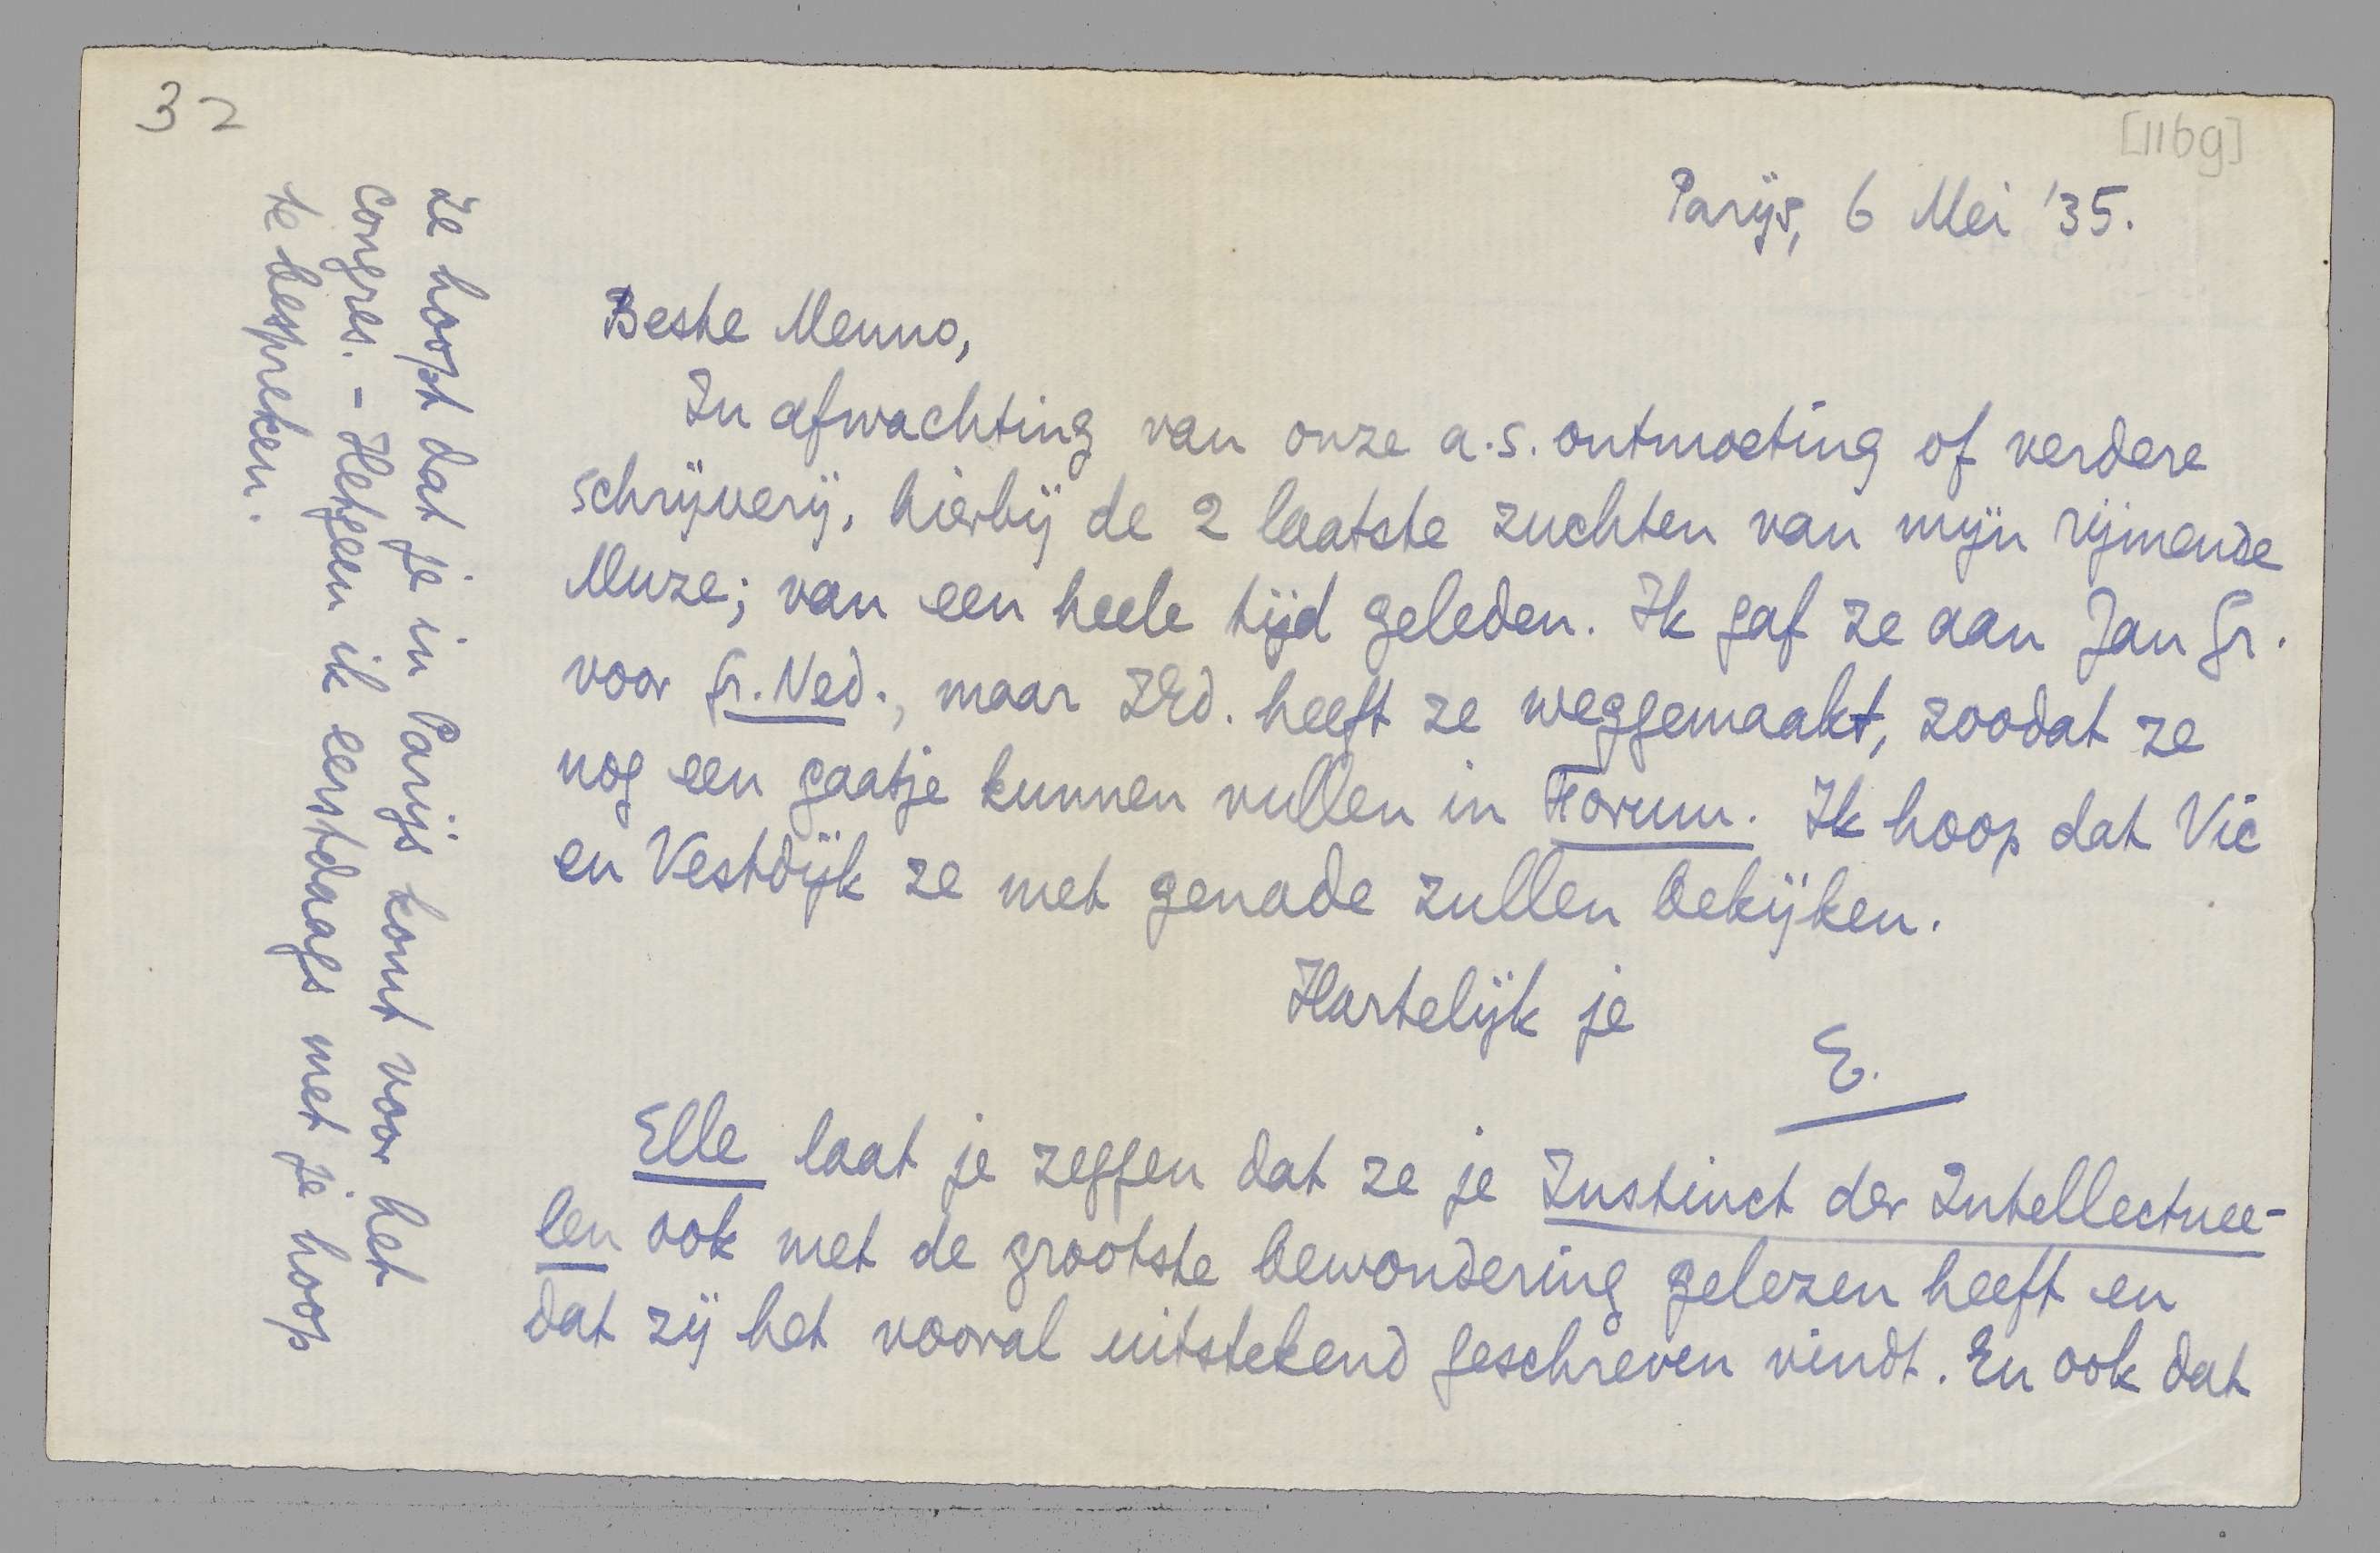 32
[1169]
Parijs, 6 Mei '35.
Beste Menno,
In afwachting van onze a.s. ontmoeting of verdere
schrijverij, hierbij de 2 laatste zuchten van mijn rijmende
Muze; van een heele tijd geleden. Ik gaf ze aan Jan Gr.
voor Gr. Ned., maar ZEd. heeft ze weggemaakt, zoodat ze
nog een gaatje kunnen vullen in Forum. Ik hoop dat Vic
en Vestdijk ze met genade zullen bekijken.
Hartelijk je
E.
Elle laat je zeggen dat ze je Instinct der Intellectuee-
len ook met de grootste bewondering gelezen heeft en
dat zij het vooral uitstekend geschreven vindt. En ook dat
ze hoopt dat je in Parijs komt voor het
congres. - Hetgeen ik eerstdaags met je hoop
te bespreken.